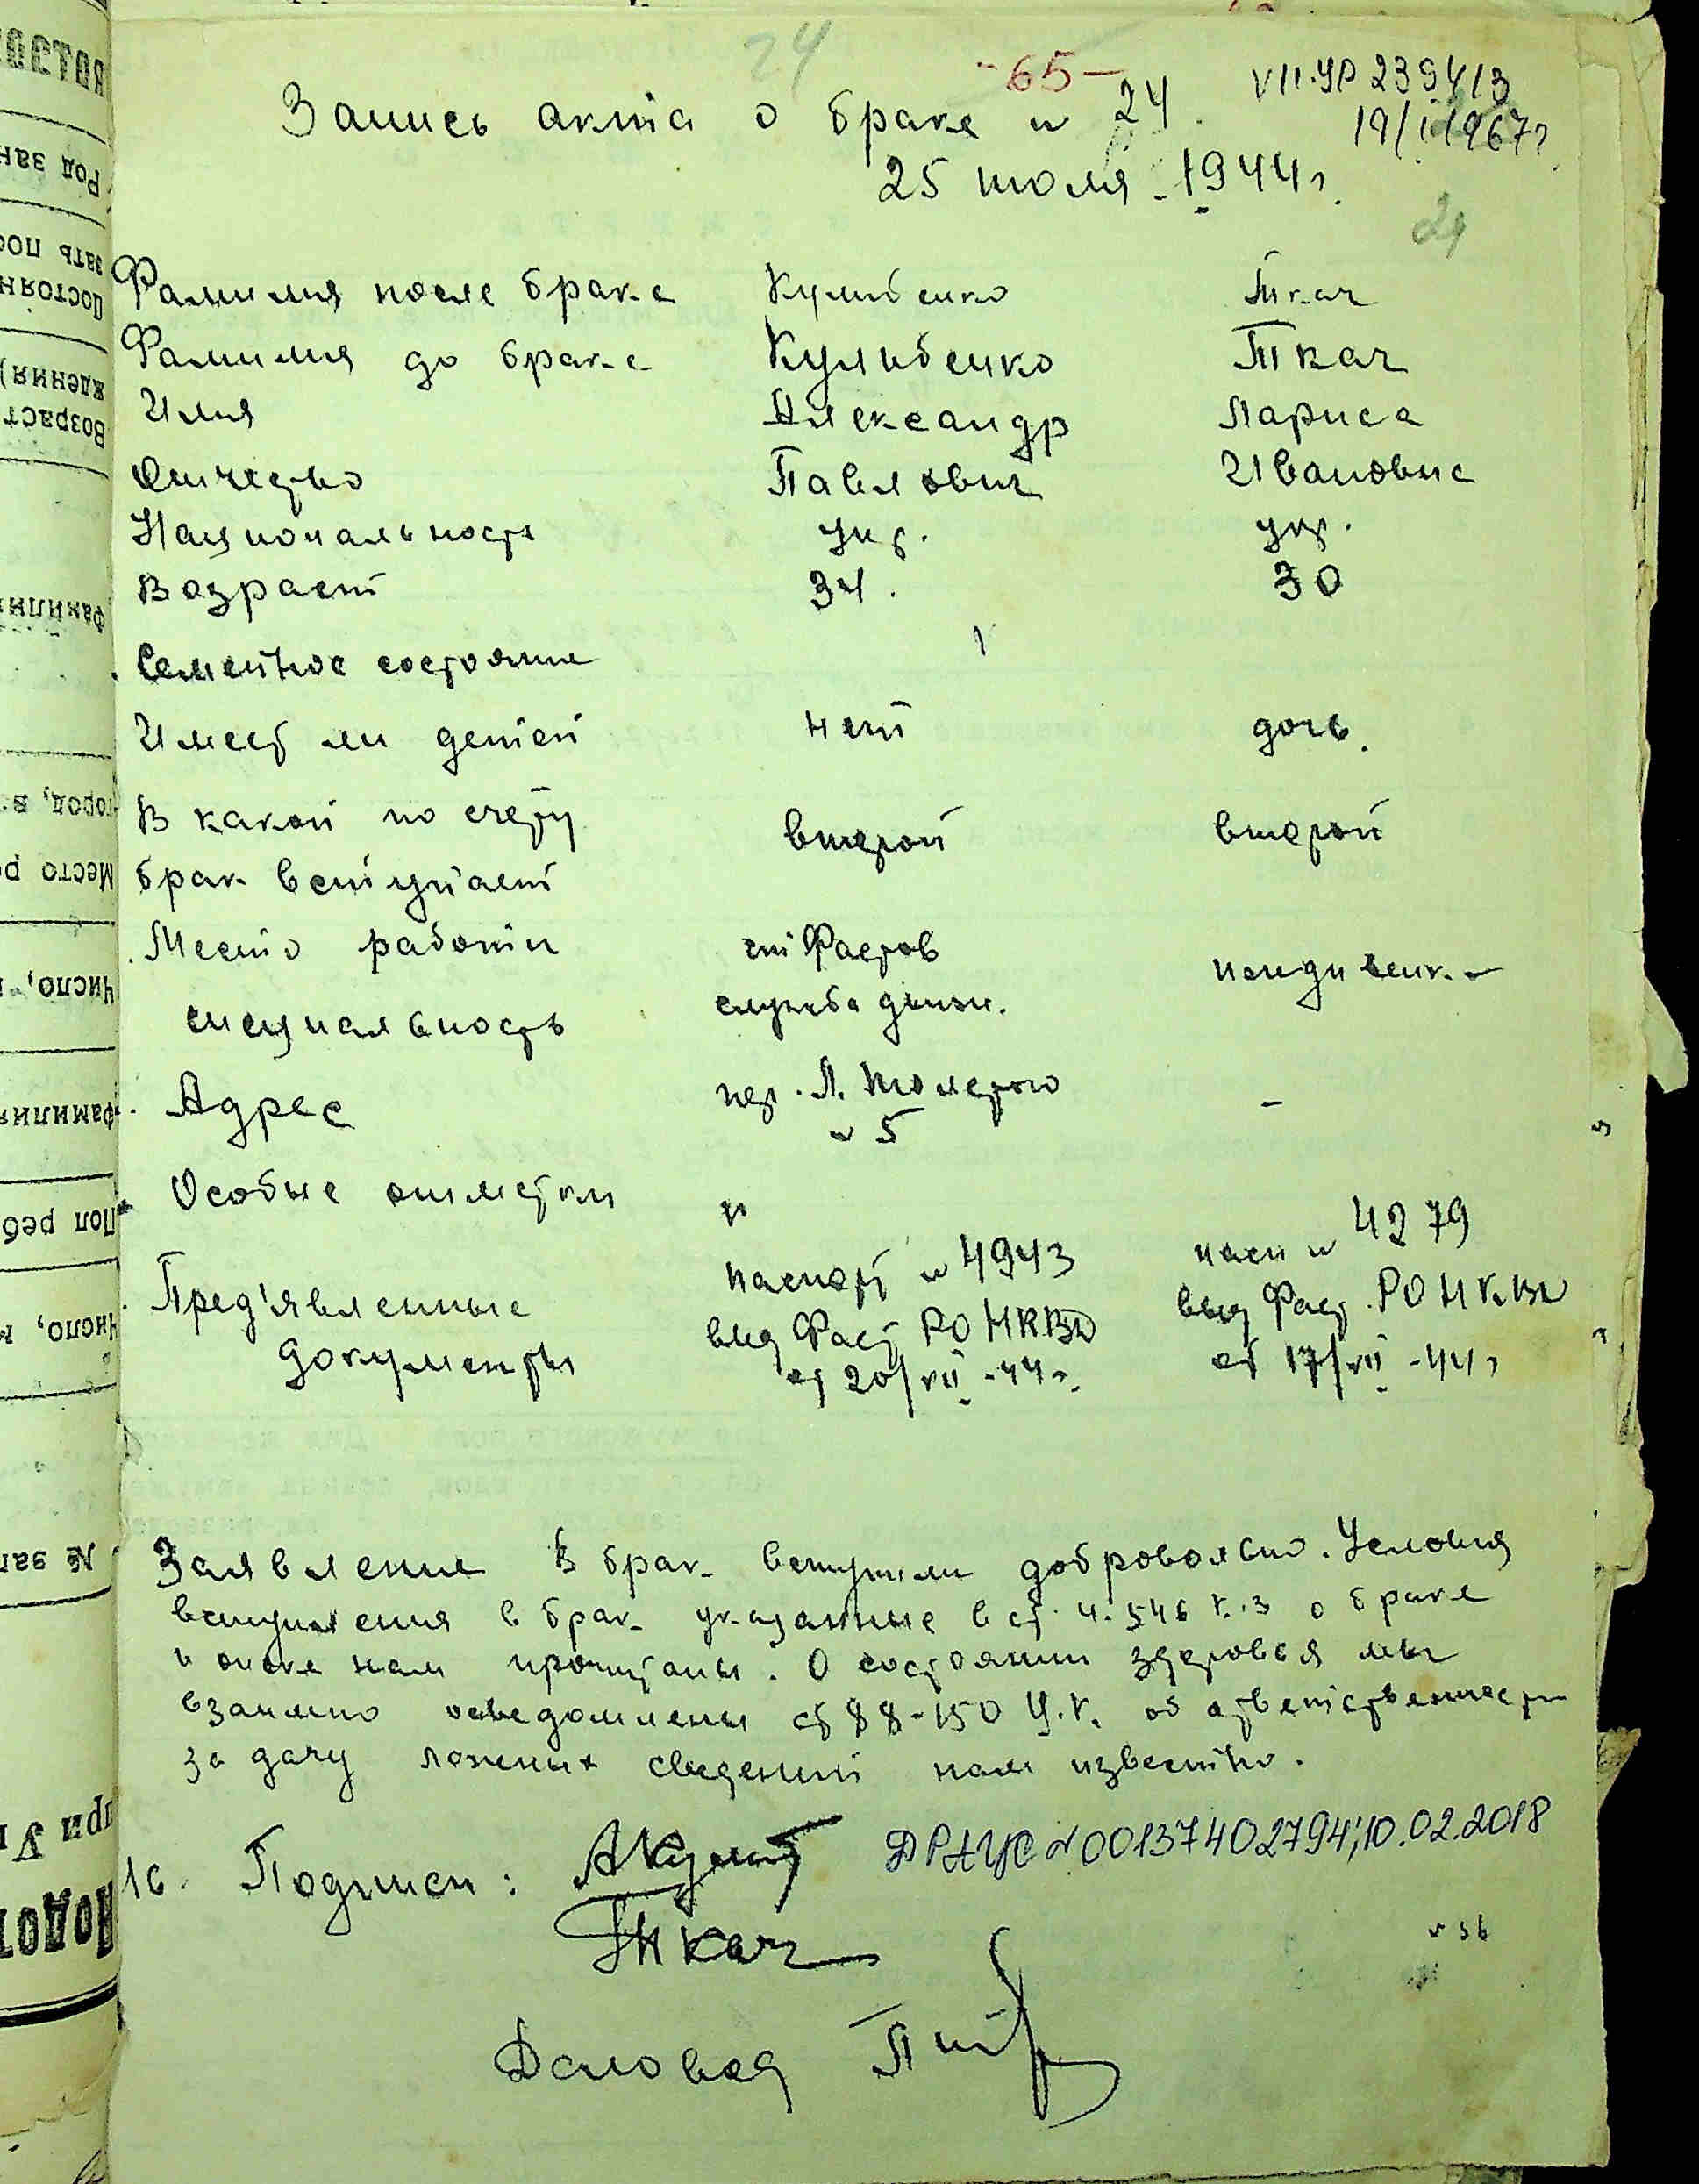 24
-65-
VII.УР 239413
Запись акта о браке N 24.
19/I 1967г.
25 июля - 1944г.
24
Фамилия после брака Кулибенко Ткач
Фамилия до брака Кулибенко Ткач
Имя Александр Лариса
Отчество Павлович Ивановна
Национальность укр. укр.
Возраст 34. 30
Семейное состояние
Имеет ли детей нет дочь.
В какой по счету второй второй
брак вступает
Место работы ст Фастов иждивенк.
специальность служба движ.
Адрес пер. Л. Толстого -
N 5
Особые отметки
Пред'явленные паспорт N 4943 пасп N 4279
документы выд Фаст РО НКВД выд Фаст. РО НКВД
от 20/VII-44г. от 17/VII-44г
Заявление В брак вступили добровольно. Условия
вступления в брак указанные в ст. 4. 546 К.З о браке
и опеке нам прочитаны. О состоянии здоровья мы
взаимно осведомлены ст 88-150 У.К. об ответственности
за дачу ложных сведений нам известно.
16. Подписи:
ДРАЦС N 00137402794; 10.02.2018
Ткач
N 36
Деловод
ЯОТСОП
Род зан
зать пос
Постоян
ждения)
Возраст
Фамилия
город, в
Место ро
Число,
Фамилия
Пол реб
Число, м
№ зап
при У